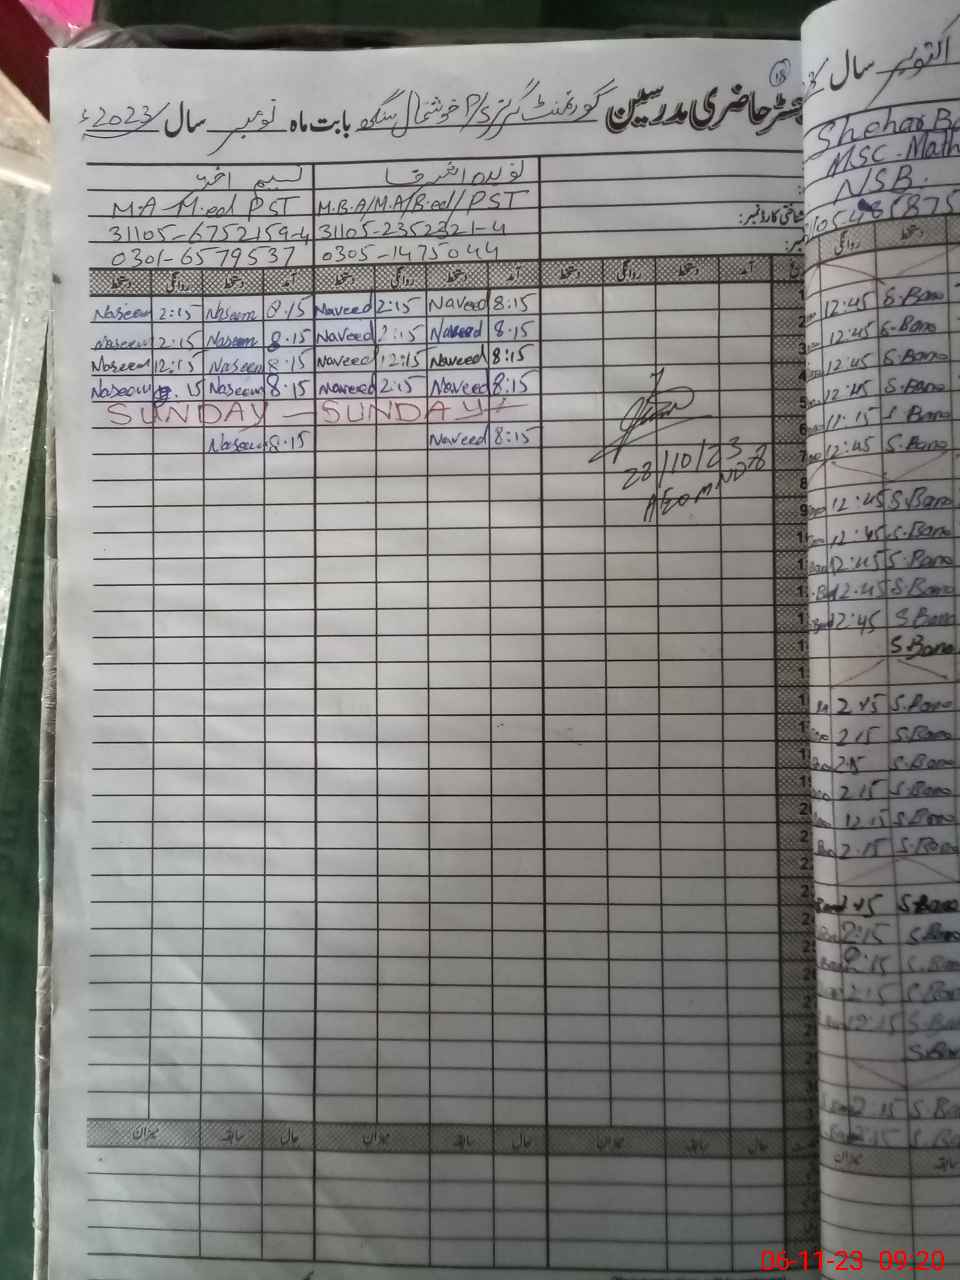 18
رجسٹر حاضری مدرسین گورنمنٹ گرلز P/S خوشحال سنگھ بابت ماہ نومبر سال 2023ء
نویدہ اشرف نسیم اختر
M.B.A/M.A/B.ed/PST M.A-M.ed PST
شناختی کارڈ نمبر: 31105-2352321-4 31105-6752159-4
0305-1475044 0301-6579537
آمد دستخط روانگی دستخط آمد دستخط روانگی دستخط آمد دستخط روانگی دستخط
Naseem 2:15 Naseem 8.15 Naveed 2:15 Naveed 8:15
Naseem 2:15 Naseem 8.15 Naveed 2:15 Naveed 8:15
Naseem 12:15 Naseem 8.15 Naveed 12:15 Naveed 8:15
Naseem 15 Naseem 8.15 Naveed 2:15 Naveed 8:15
SUNDAY - SUNDAY
Naseem 8.15 Naveed 8:15
28/10/23
AEO MND-8
حال سابقہ میزان حال سابقہ میزان حال سابقہ میزان
اکتوبر سال
Shehar Ba
MSC. Math
NSB.
روانگی دستخط
12:45 S.Bano
12:45 S.Bano
12:45 S.Bano
12:45 S.Bano
11:15 S.Bano
12:45 S.Bano
12:45 S.Bano
12:45 S.Bano
12:45 S.Bano
12:45 S.Bano
12:45 S.Bano
S.Bano
2:45 S.Bano
2:15 S.Bano
2:15 S.Bano
2:15 S.Bano
12:15 S.Bano
2:15 S.Bano
S.Bano
2:15 S.Bano
2:15 S.Bano
2:15 S.Bano
12:15 S.Ba
S.Ban
2:15 S.Ba
2:15 S.Ba
میزان سابقہ
06-11-23 09:20